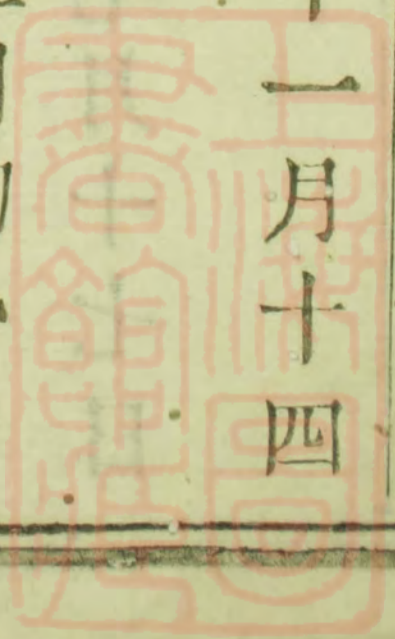 一月十四
上海圖
書館藏